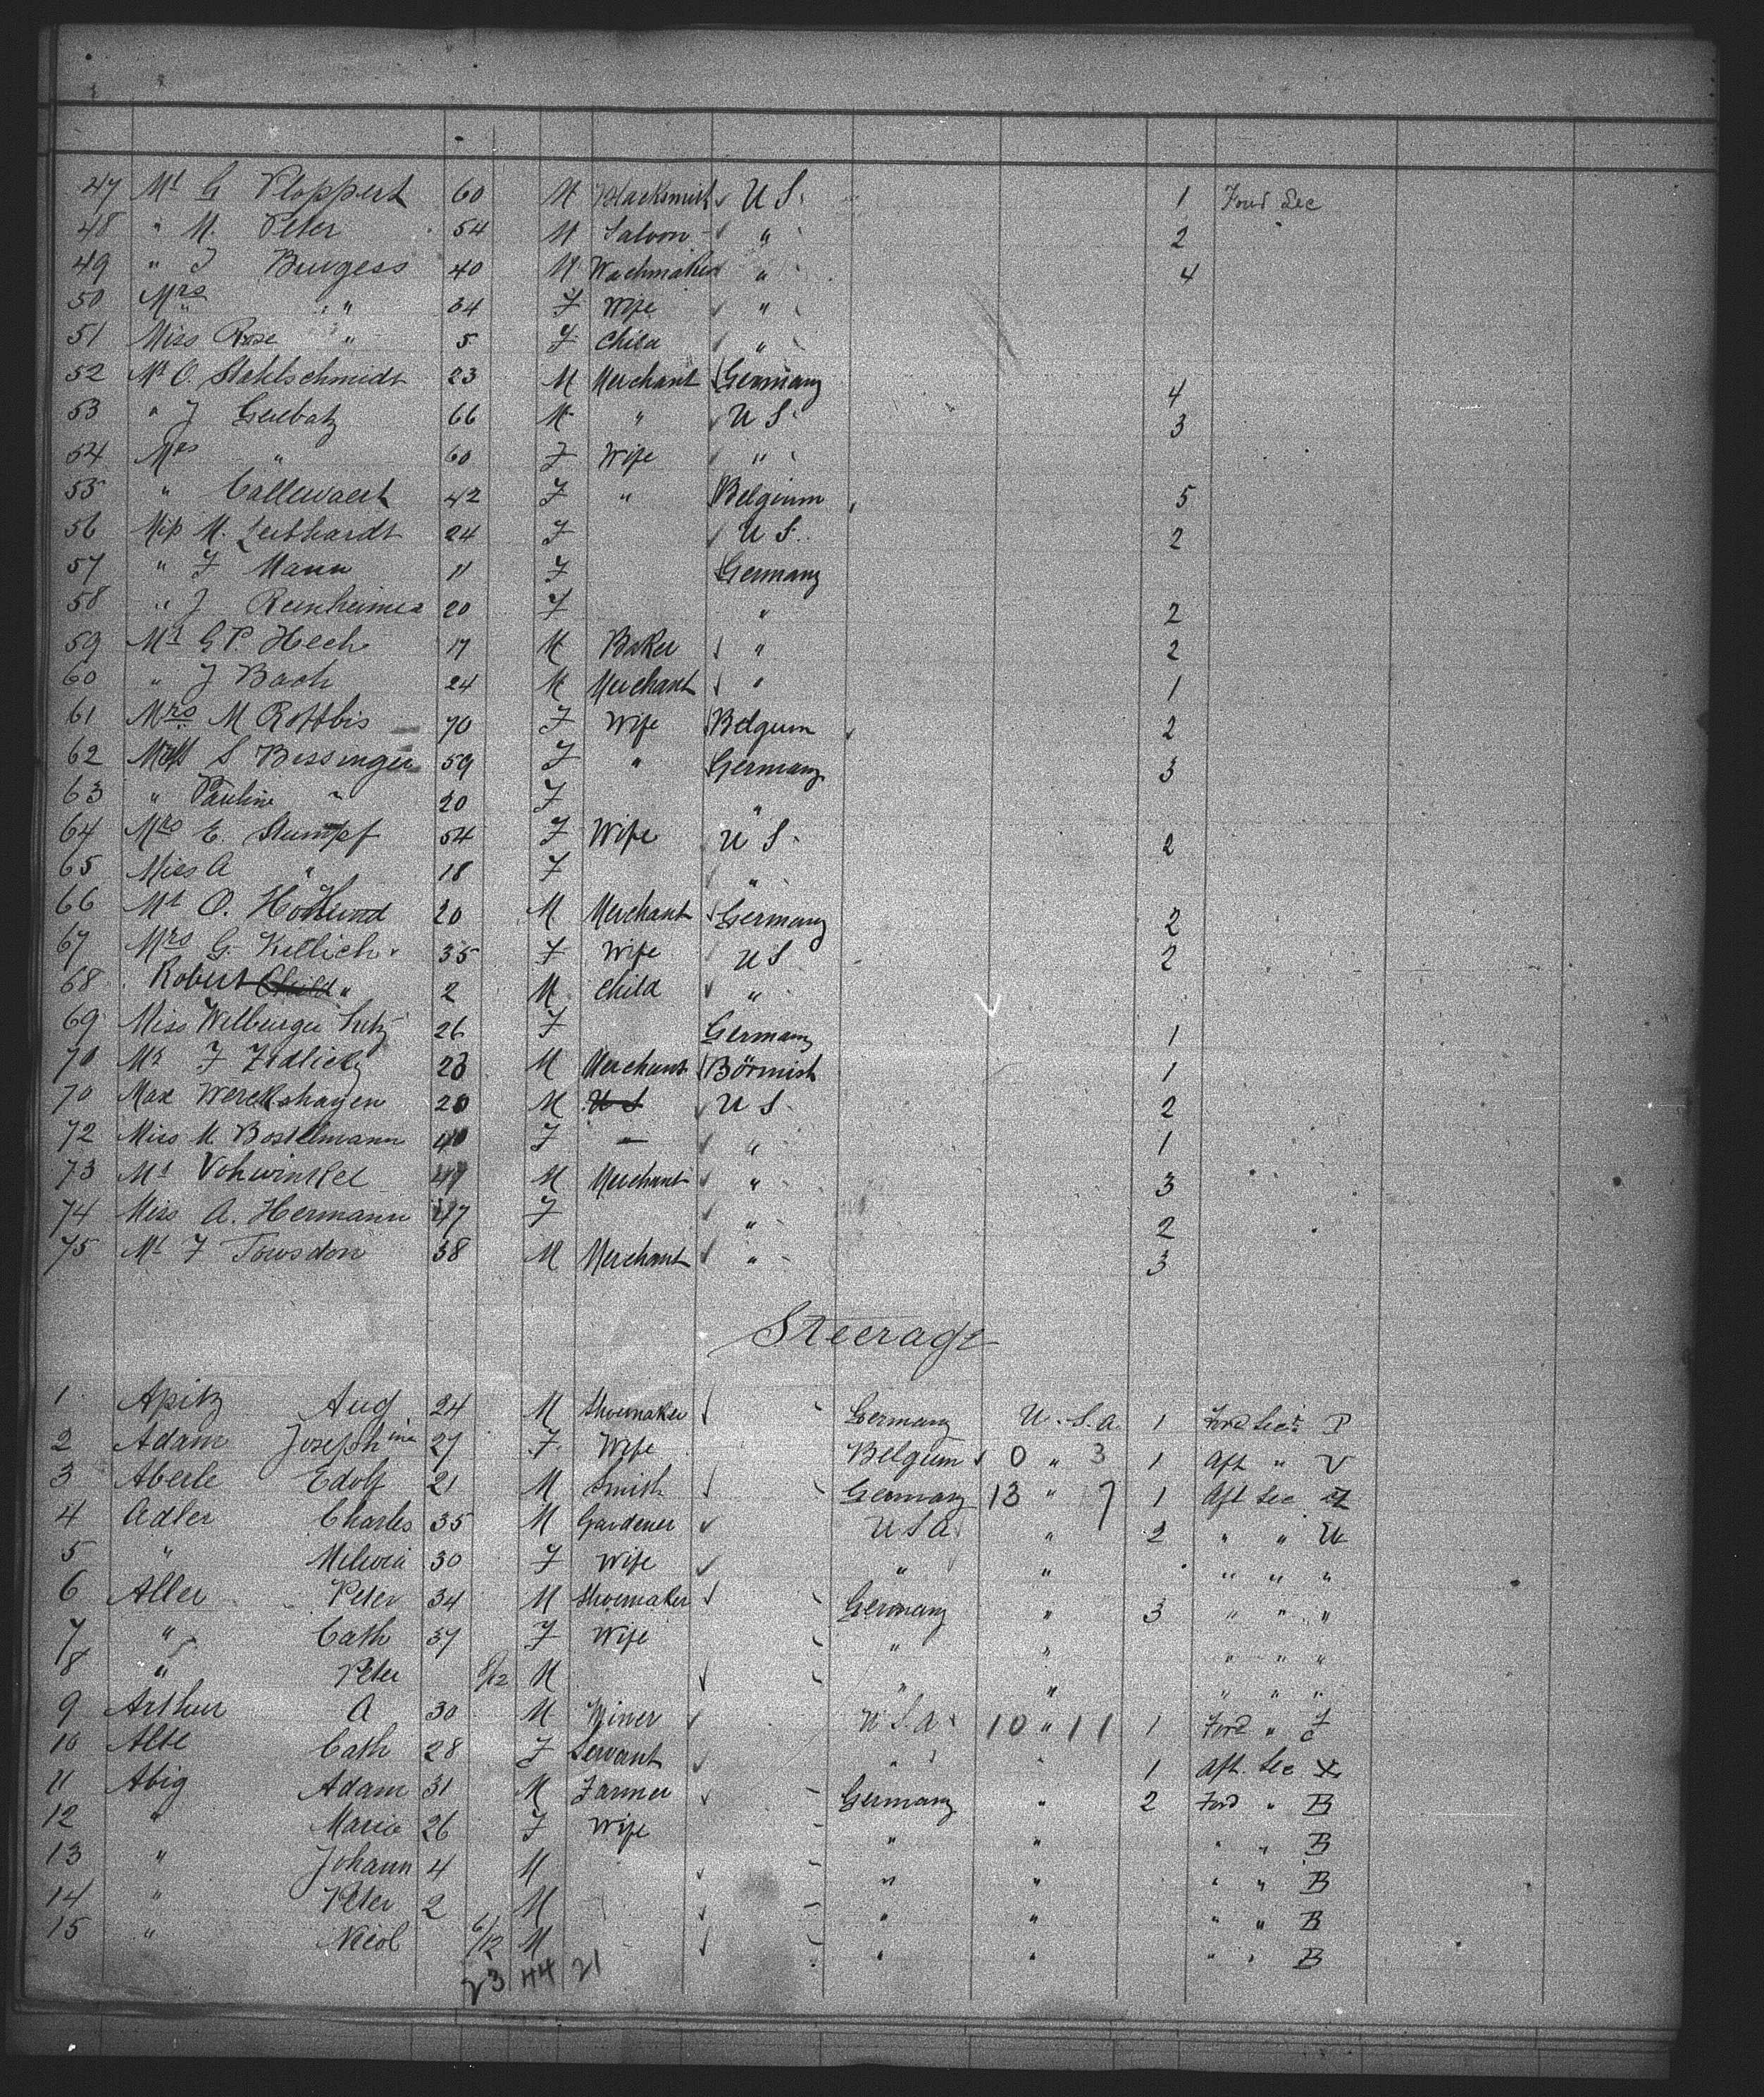 47 Mr G Ploppert 60 M Blacksmith U S. 1 Ford Sec
48 " M. Peter 54 M Saloon " 2
49 " J Burgess 40 M Wachmaker " 4
50 Mrs " 34 F Wife "
51 Miss Rose " 5 F Child "
52 Mr O. Stahlschmidt 23 M Merchant Germany 4
53 " J Gerbatz 66 M " U S. 3
54 Mrs " 60 F Wife "
55 " Callewaert 42 F " Belgium 5
56 Miss M. Leibhardt 24 F U S. 2
57 " F Mann 11 F Germany
58 " J Reinheimer 20 F " 2
59 Mr G P. Hech 17 M Baker " 2
60 " J Bach 24 M Merchant " 1
61 Mrs M Rottbis 70 F Wife Belgium 2
62 S Bissinger 59 F " Germany 3
63 " Pauline " 20 F "
64 Mrs E. Stumpf 54 F Wife U S. 2
65 Miss A " 18 F "
66 Mr O. 20 M Merchant Germany 2
67 Mrs G. Kellich 35 F Wife U S 2
68 Robert Child " 2 M Child "
69 Miss Welburger Lutz 26 F Germany 1
70 Mr F Zidlicky 23 M Merchant Börmish 1
70 Max Werckshagen 20 M U S U S. 2
72 Miss M Bostelmann 40 F — " 1
73 Mr Vohwinkel 47 M Merchant " 3
74 Miss A. Hermann 47 F " 2
75 Mr F Towsdon 38 M Merchant " 3
Steerage
1 Apitz Aug 24 M Shoemaker Germany U.S.A. 1 Ford Sect P
2 Adam Josephine 27 F Wife Belgium 0 " 3 1 Aft " V
3 Aberle Edolf 21 M Smith Germany 13 " 7 1 Aft Sec Z
4 Adler Charles 35 M Gardener U S A " 2 " " U
5 " 30 F Wife " " " " "
6 Aller Peter 34 M Shoemaker Germany " 3 " " "
7 " Cath 37 F Wife " " " " "
8 " Peter 8/12 M " " " " "
9 Arthur A 30 M Miner U.S.A 10 " 11 1 Ford " F
10 Alte Cath 28 F Servant " " 1 Aft. Sec X
11 Abig Adam 31 M Farmer Germany " 2 Ford " B
12 " Maria 26 F Wife " " " " B
13 " Johann 4 M " " " " B
14 " Peter 2 M " " " " B
15 " Nicol 6/12 M " " " " B
23 44 21